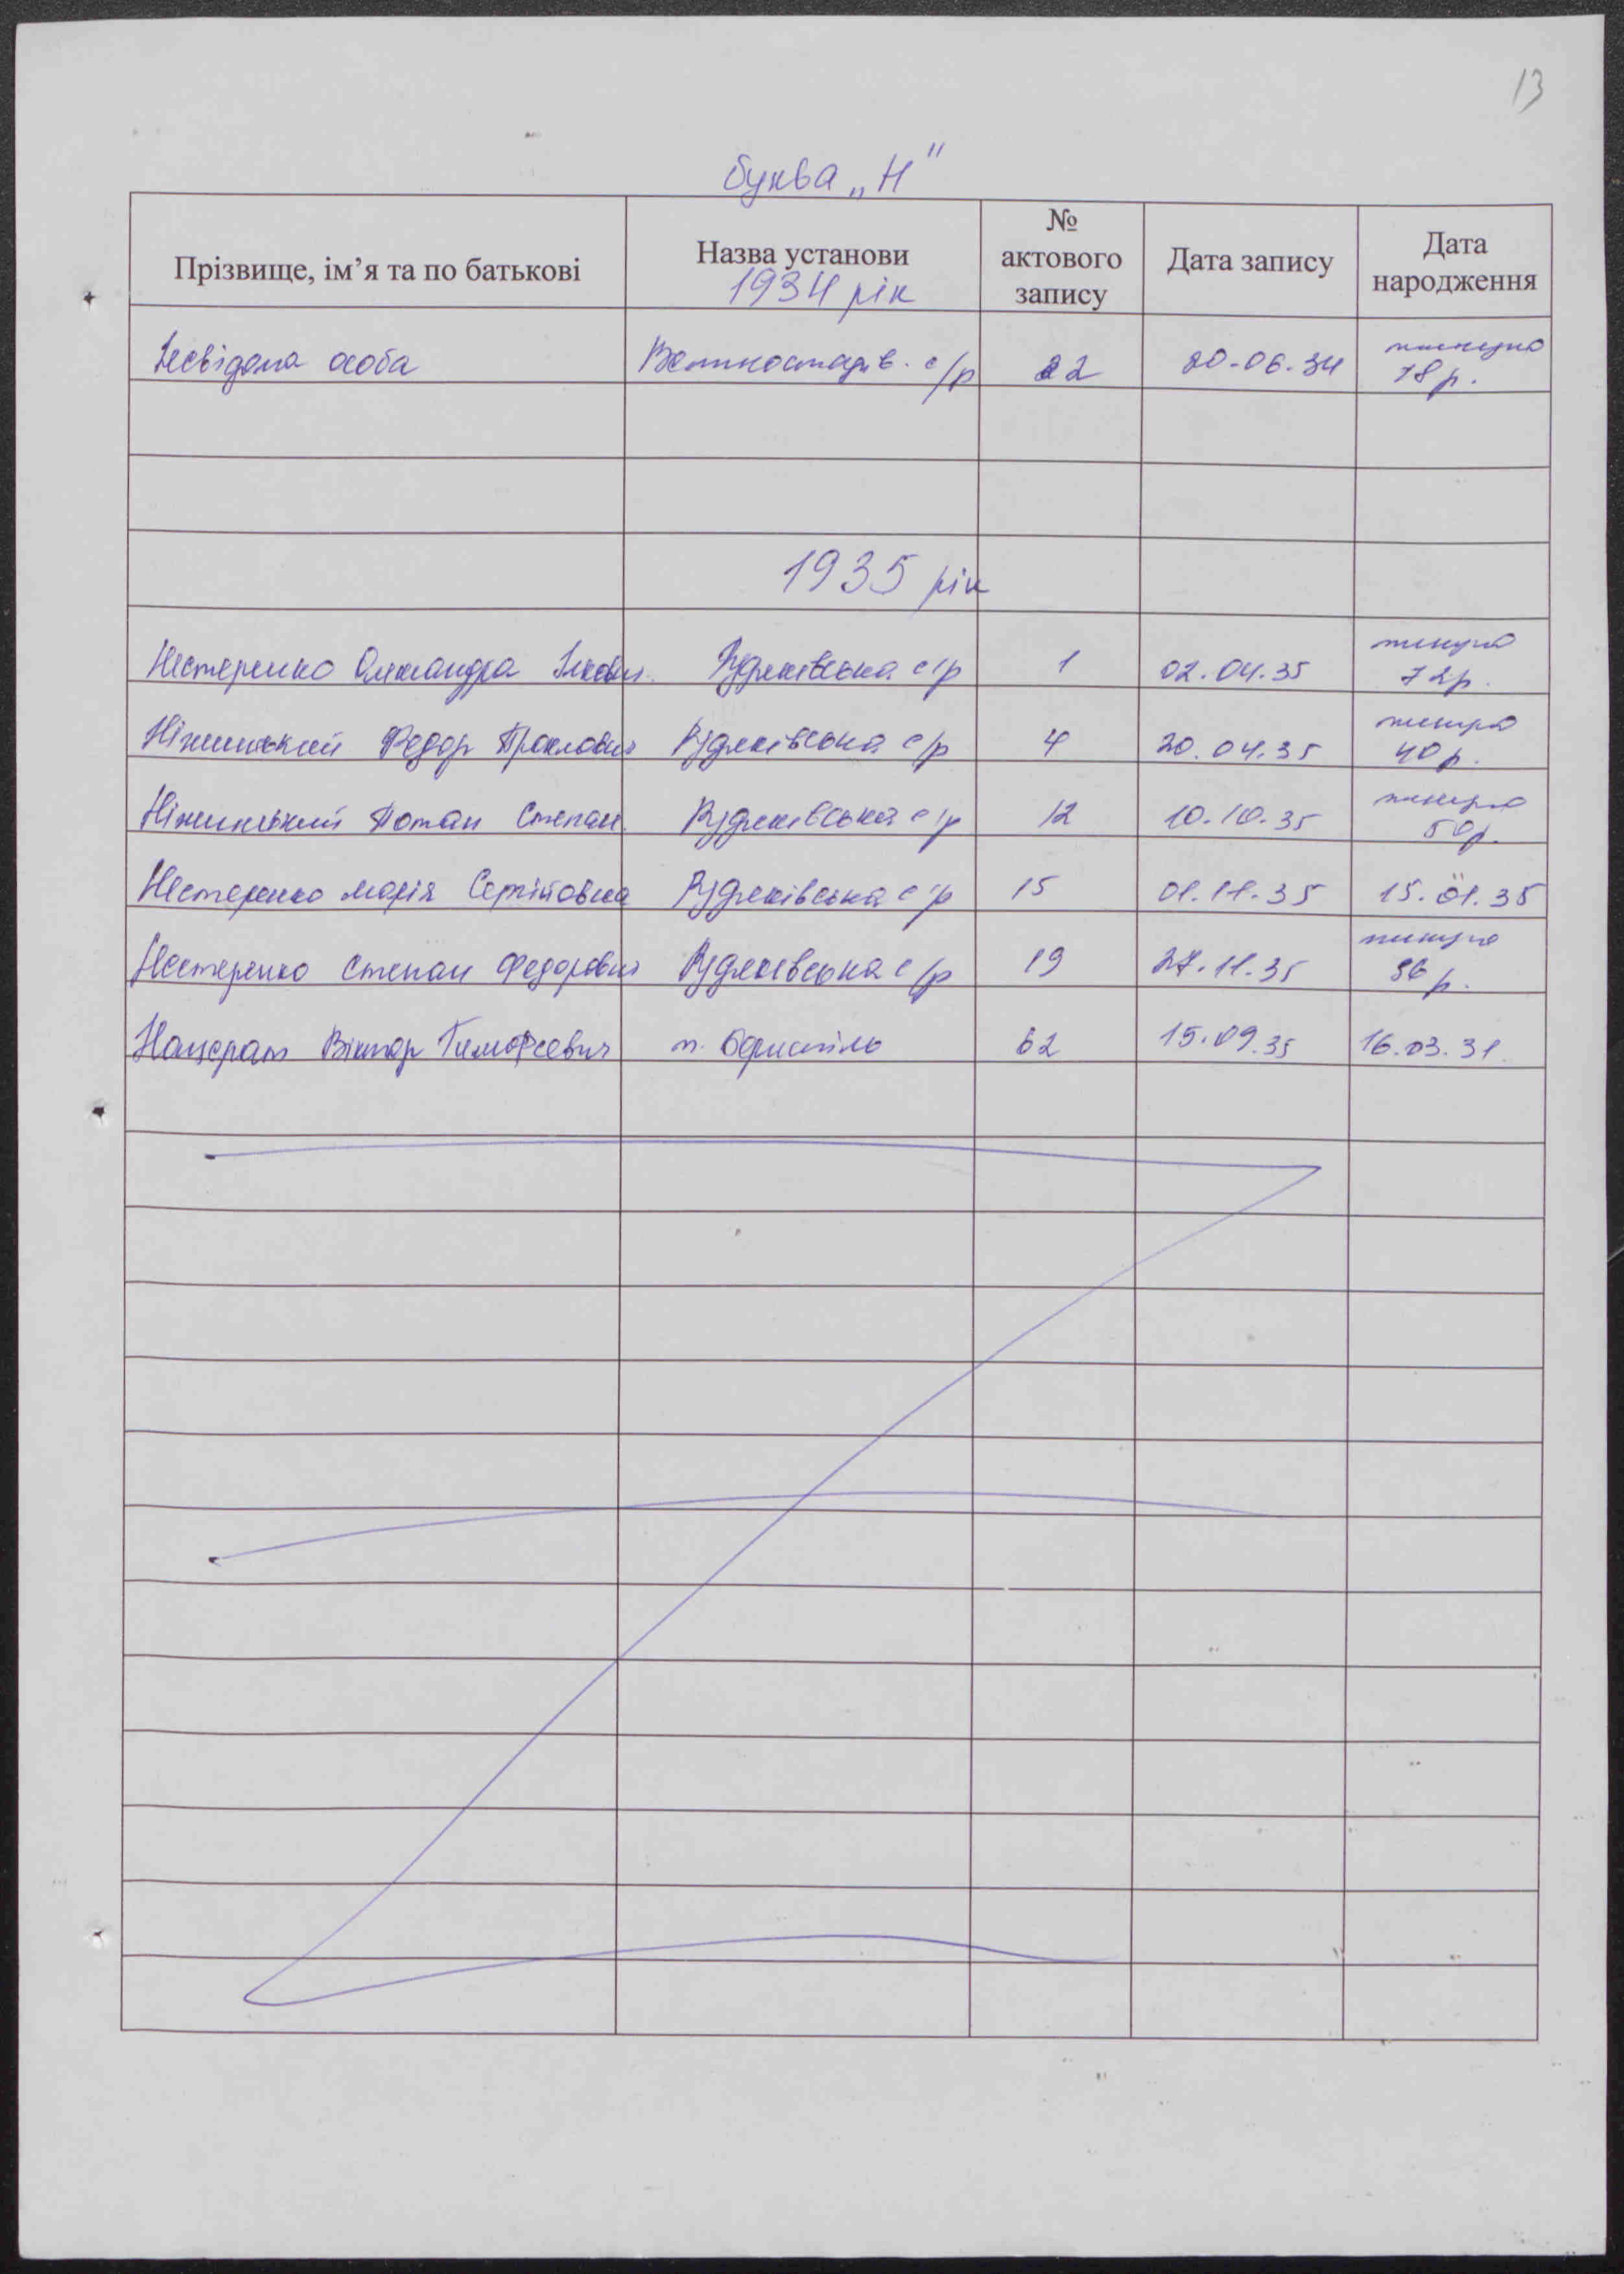 13
буква „Н"
Прізвище, ім’я та по батькові Назва установи № актового запису Дата запису Дата народження
1934 рік
Несвідома особа с/р 22 20.06.34 78 р.
1935 рік
Нестеренко Олександра с/р 1 02.04.35 72 р.
Ніжинський Федор Проклович с/р 4 20.04.35 40 р.
Ніжинський Потап Степан. с/р 12 10.10.35 50 р.
Нестеренко Марія Сергіївна с/р 15 01.11.35 15.01.35
Нестеренко Степан Федорович с/р 19 27.11.35 36 р.
Віктор Тимофеевич м. Бориспіль 62 15.09.35 16.03.31